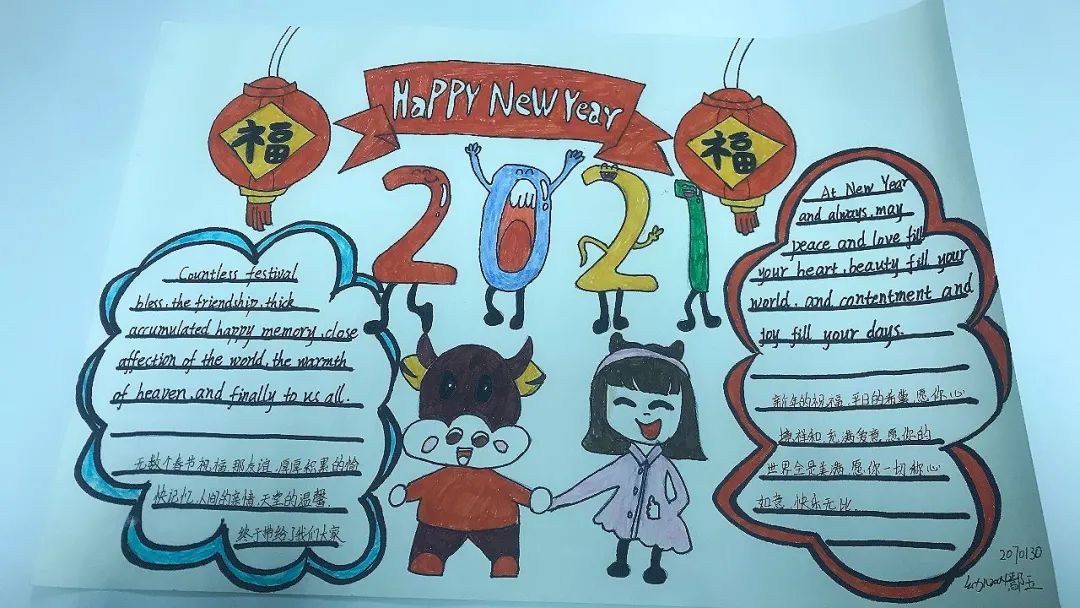 HaPPY New Year
福
福
2021
Countless festival
bless, the friendship, thick
accumulated happy memory, close
affection of the world, the warmth
of heaven, and finally to us all.
无数个春节祝福,那友谊,厚厚积累的愉
快记忆,人间的亲情,天堂的温馨,
终于带给了我们大家
At New Year
and always, may
peace and love fill
your heart, beauty fill your
world, and contentment and
joy fill your days.
新年的祝福,平日的希冀,愿你心
境祥和,充满爱意,愿你的
世界全是美满,愿你一切称心
如意,快乐无比.
2070130